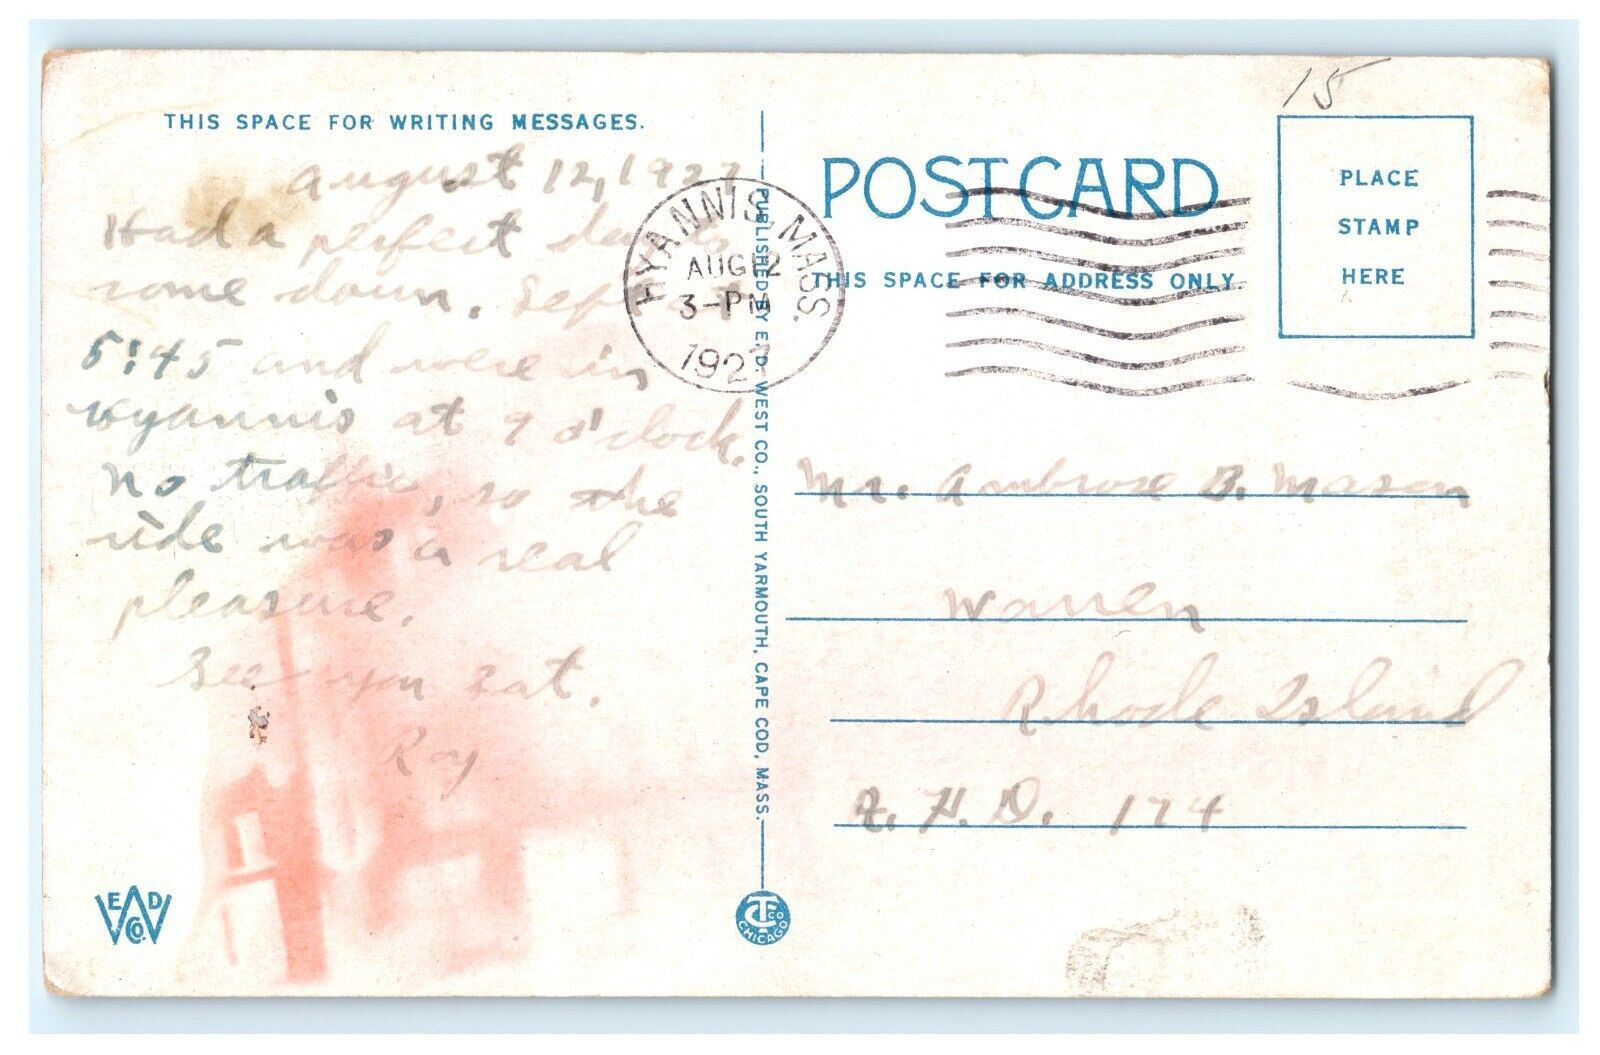 15
THIS SPACE FOR WRITING MESSAGES.
August 12, 1927
Had a perfect
come down.
5:45 and were in
Hyannis at 9 o'clock.
No traffic, so the
ride was a real
pleasure.
See you Sat.
Roy
HYANNIS, MASS.
AUG 12
3-PM
1927
PUBLISHED BY E. D. WEST CO., SOUTH YARMOUTH, CAPE COD, MASS.
POST CARD
THIS SPACE FOR ADDRESS ONLY.
PLACE
STAMP
HERE
Mr. Ambrose B. Mason
Warren
Rhode Island
174
E D
W
CO.
C T CO
CHICAGO